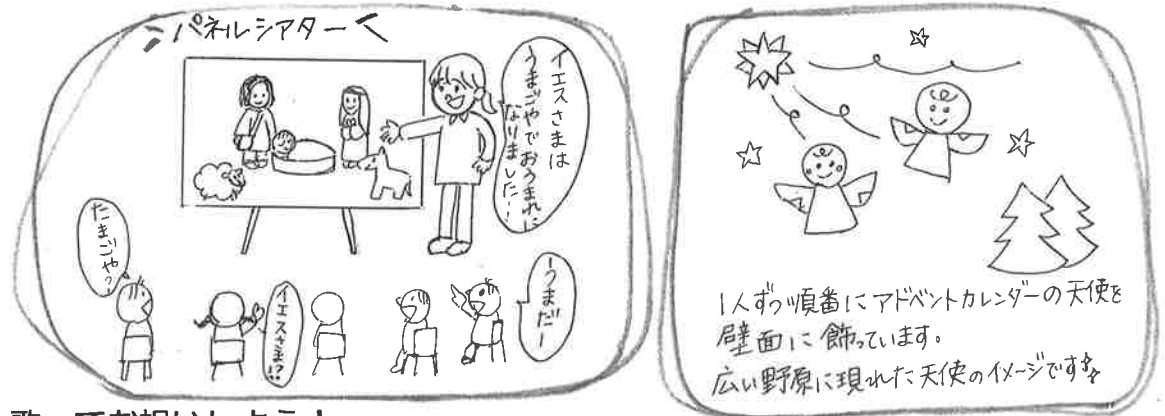 パネルシアター
イエスさまは
うまごやでおうまれに
なりました!
たまごや?
イエスさま!?
うまだー
1人ずつ順番にアドベントカレンダーの天使を
壁面に飾っています。
広い野原に現れた天使のイメージです